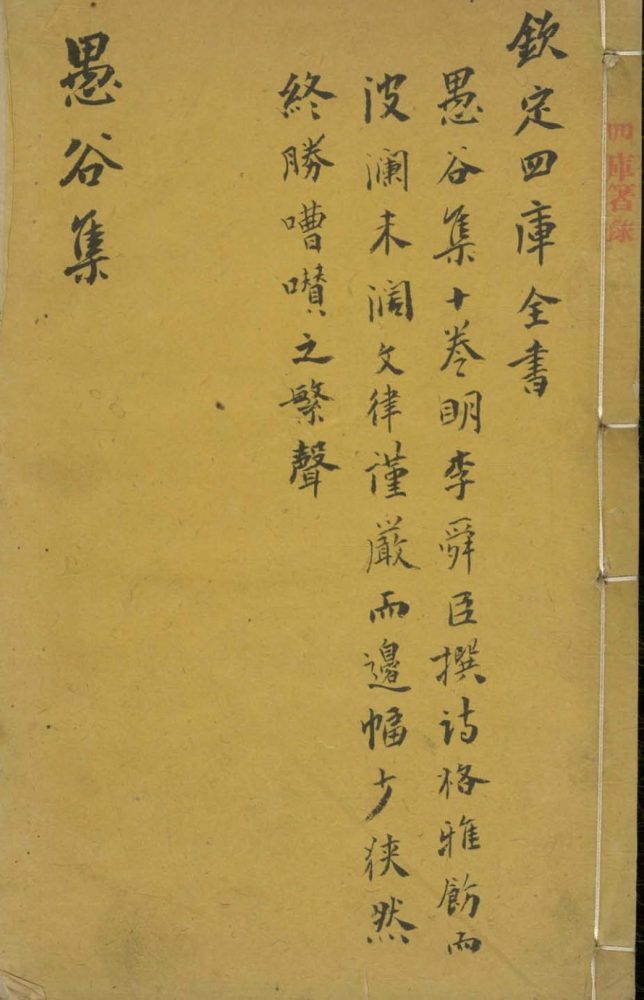 四庫著錄
欽定四庫全書
愚谷集十卷明李舜臣撰詩格雅飭而
波瀾未濶文律謹嚴而邊幅少狹然
終勝嘈囋之繁聲
愚谷集